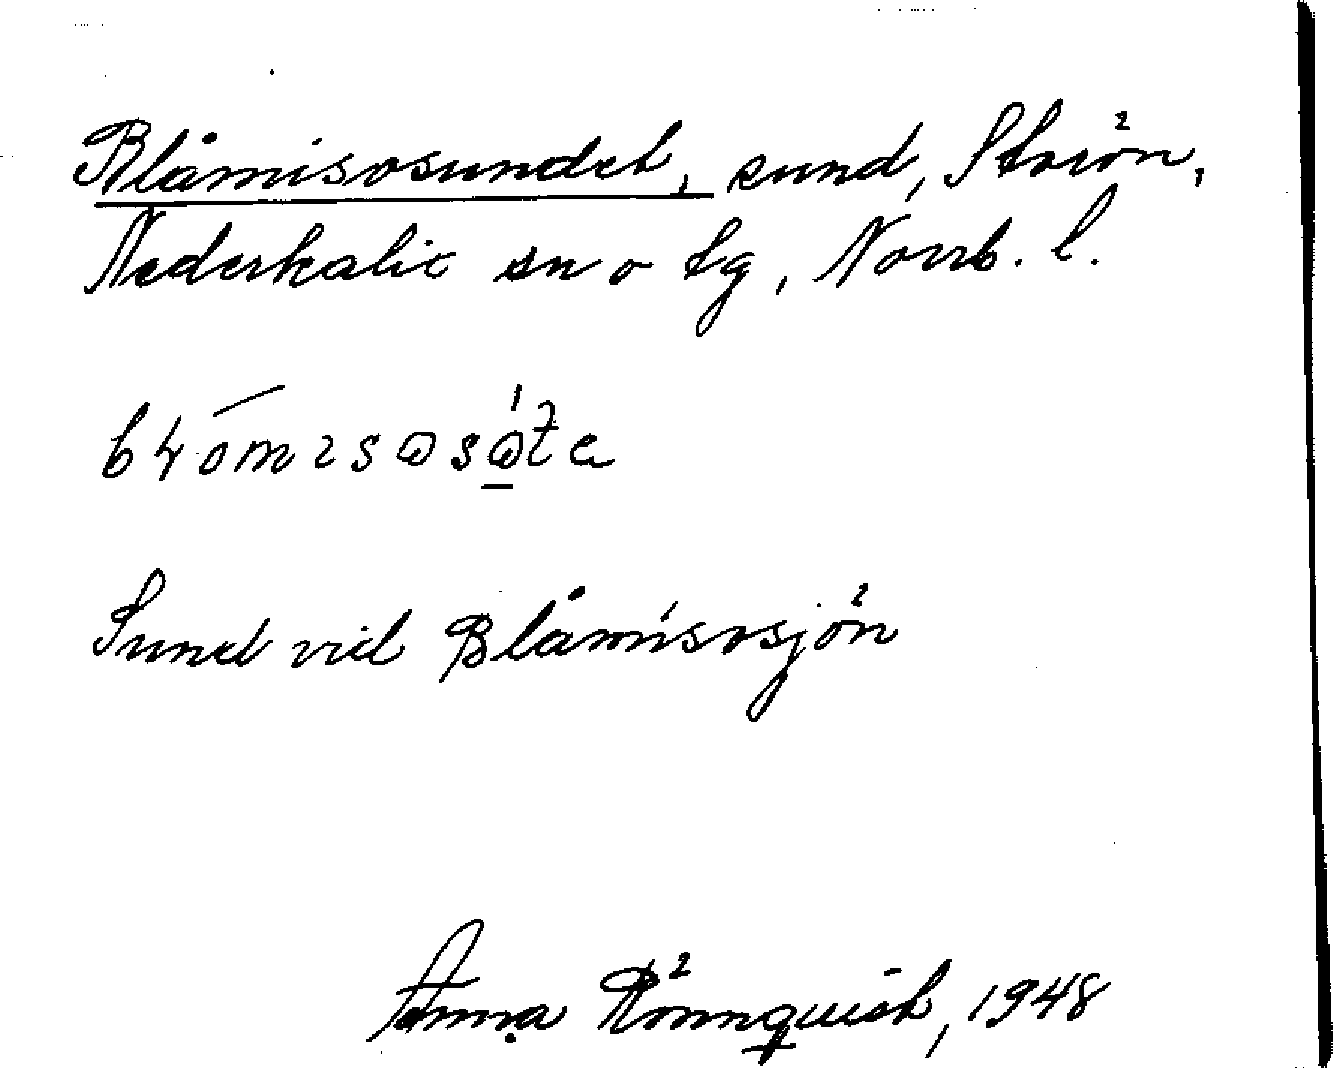 Blåmisosundet, sund, Storön,
Nederkalix sn o tg, Norrb. l.
Sund vid Blåmisosjön
Anna Rönnquist, 1948